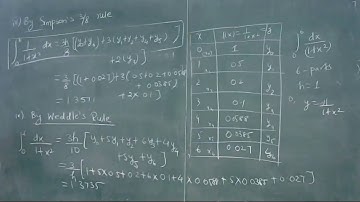 iii) By Simpson's 3/8 rule
∫₀⁶ 1/1+x² = 3h/8 [(y₀+y₆)+3(y₁+y₂+y₄+y₅)
+2(y₃)]
= 3/8 [(1+0.027)+3(0.5+0.2+0.0588
+0.0385)
+2×0.1]
= 1.3571
iv) By Weddle's Rule
∫₀⁶ dx/1+x² = 3h/10 [y₀+5y₁+y₂+6y₃+y₄
+5y₅+y₆]
= 3/10 [1+5×0.5+0.2+6×0.1+0.0588+5×0.0385+0.027]
= 1.3735
x f(x)=1/1+x² y
0 x₀ 1 y₀
1 0.5 y₁
2 0.2 y₂
3 0.1 y₃
4 0.0588 y₄
5 0.0385 y₅
6 x₆ 0.027 y₆
∫₀⁶ dx/(1+x²)
6-parts
h=1
y=1/1+x²